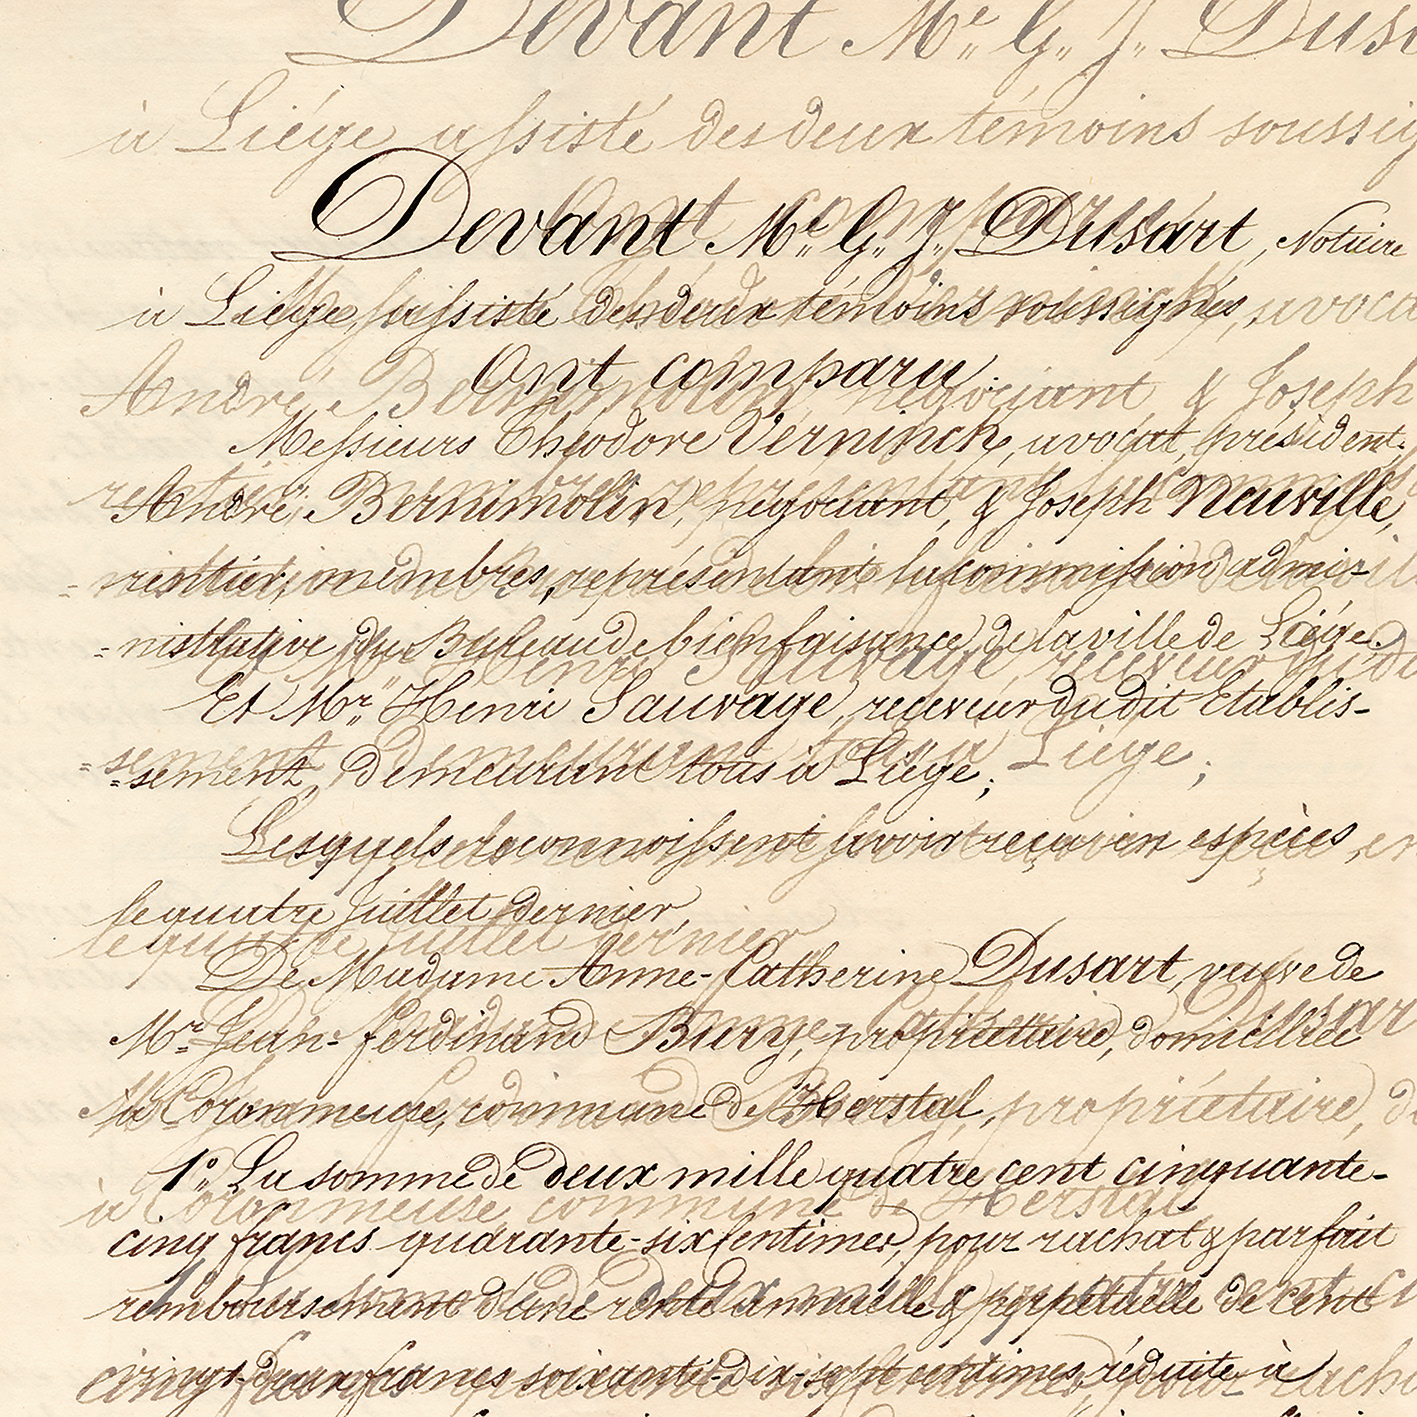 Devant Me. G. J. Dus
à Liége assisté des deux témoins soussig
Devant Me. G. J. Dusart, Notaire
à Liége, assisté des deux témoins soussignés,
Ont comparu:
Messieurs Théodore Verninck, avocat, président
André Bernimolin, négociant, & Joseph Neuville,
rentier, membres, représentant la commission admi-
=nistrative du Bureau de bienfaisance de la ville de Liége.
Et Mr. Henri Sauvage, receveur du dit Etablis-
=sement, demeurant tous à Liége;
Lesquels reconnoissent avoir reçu en espèces,
le quatre Juillet dernier,
De Madame Anne-Catherine Dusart, veuve de
Mr. Jean-ferdinand Bury, propriétaire, domiciliée
à Coronmeuse, commune de Herstal,
1º. La somme de deux mille quatre cent cinquante-
cinq francs quarante-six centimes, pour rachat & parfait
remboursement d'une rente annuelle & perpétuelle de cent
francs soixante-dix-sept centimes, réduite à